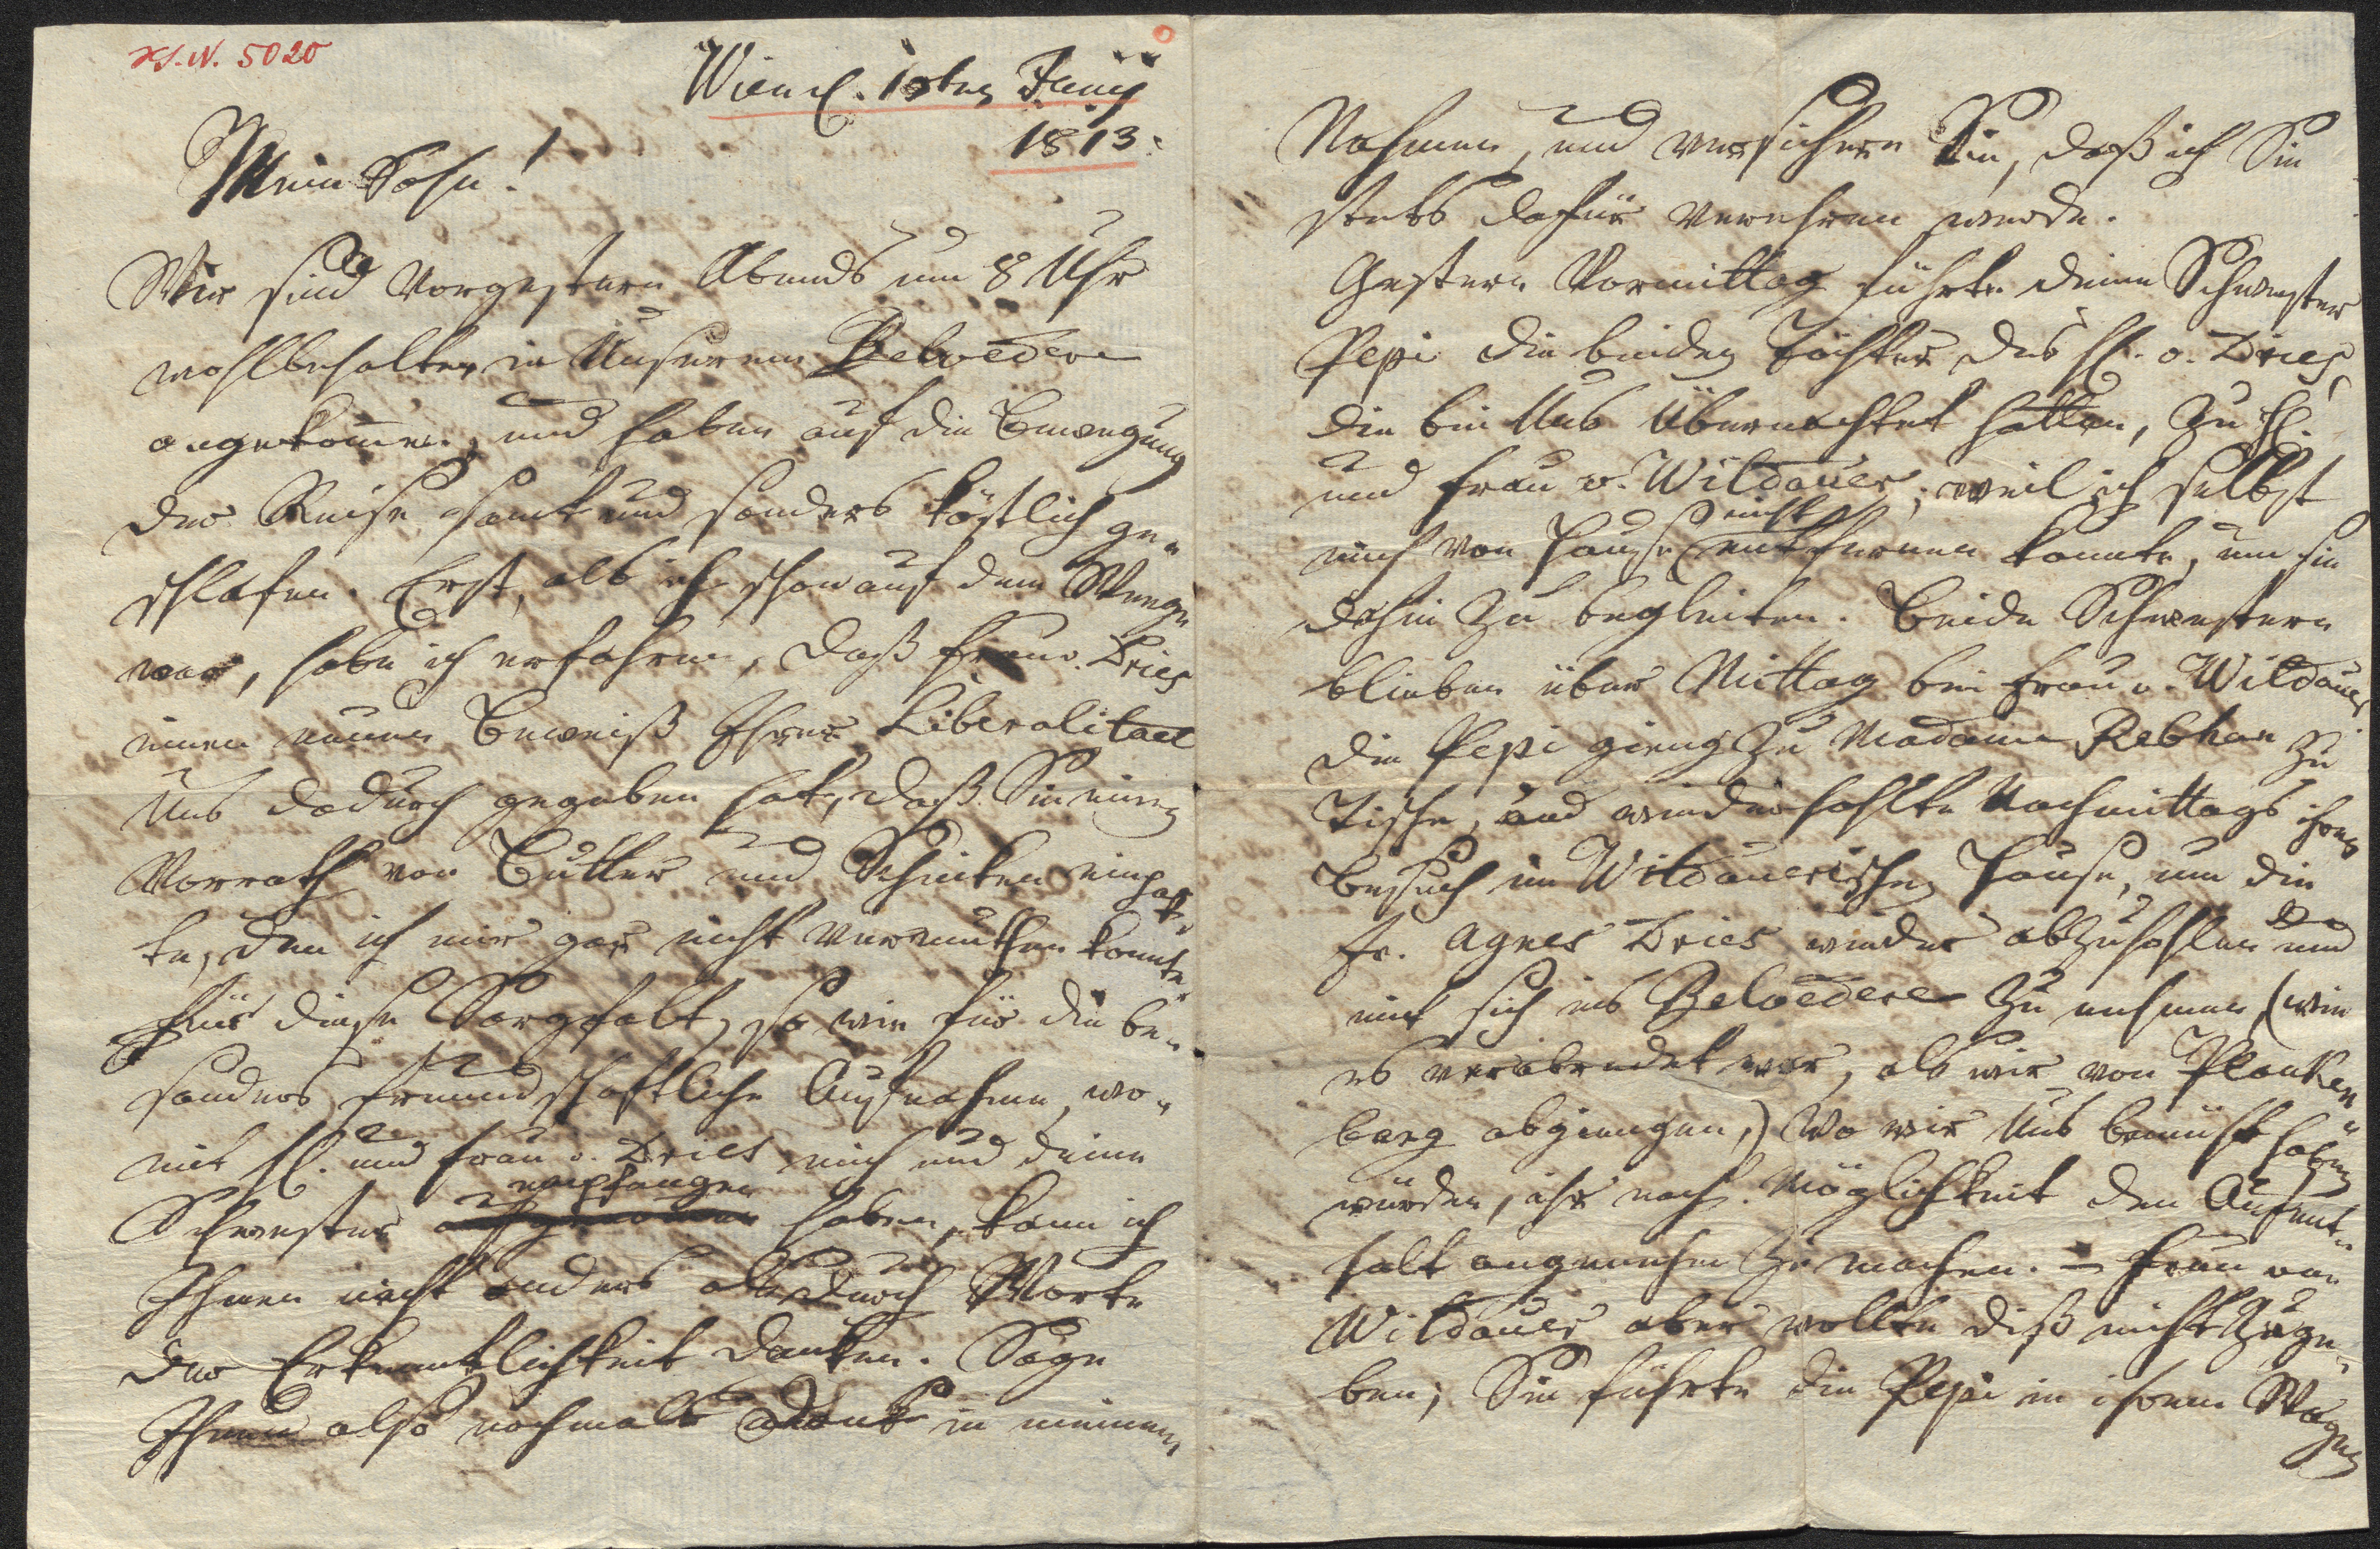 H.I.N. 5020
Wien d. 10ten Juny
1813.
Mein Sohn!
Wir sind vorgestern Abends um 8 Uhr
wohlbehalten in Unserem Belvedere
angekom̅en, und haben auf die Bewegung
der Reise samt und sonders köstlich ge„
schlafen. Erst, als ich schon auf dem Wege
war, habe ich erfahren, daß Frau v. Dries
einen neuen Beweiß Ihrer Liberalitaet
Uns dadurch gegeben hat, daß Sie einen
Vorrath von Butter und Schinken einpak„
te, den ich mir gar nicht vermuthen konnte.
Für diese Sorgfalt, so wie für die be„
sonders freundschaftliche Aufnahme, wo„
mit H. und Frau v. Dries mich und deine
empfangen
Schwester aufgenomen haben, kann ich
Ihnen nicht anders als durch Worte
der Erkenntlichkeit danken. Sage
Ihnen also nochmals Dank in meinem
Nahmen, und versichere Sie, daß ich Sie
stets dafür verehren werde.
Gestern Vormittag führte deine Schwester
Pepi die beiden Töchter des H. v. Dries,
die bei Uns übernachtet hatten, zu H.
und Frau v. Wildauer; weil ich selbst
nicht
mich von Hause entfernen konnte, um sie
dahin zu begleiten. Beide Schwestern
blieben über Mittag bei Frau v. Wildauer
die Pepi gieng zu Madame Rebhan zu
Tische, und wiederhohlte Nachmittags ihren
Besuch im Wildauerischen Hause, um die
Fr. Agnes Dries wieder abzuhohlen und
mit sich ins Belvedere zu nehmen, (wie
es verabredet war, als wir von Planken„
berg abgiengen,) wo wir Uns bemüht haben
würden, ihr nach Möglichkeit den Aufent„
halt angenehm zu machen. – Frau von
Wildauer aber wollte diß nicht zuge„
ben; Sie führte die Pepi in ihrem Wagen